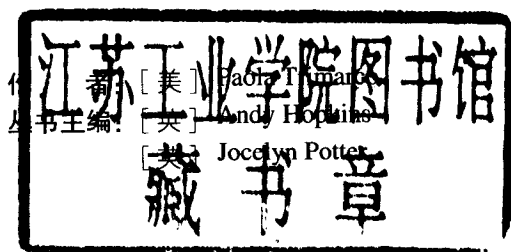 江苏工业学院图书馆
作 者: [美] Paola Trimarco
丛书主编: [英] Andy Hopkins
[英] Jocelyn Potter
藏书章